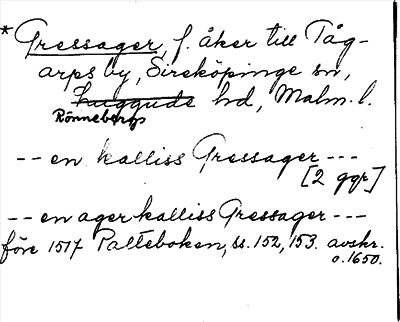 * Gressager, f. åker till Tåg-
arps by, Sireköpinge sn,
Luggude hd, Malm. l.
Rönnebergs
-- en kalliss Gressager ---
[2 ggr]
-- en ager kalliss Gressager ---
före 1517 Palteboken, ss. 152, 153. avskr.
o. 1650.